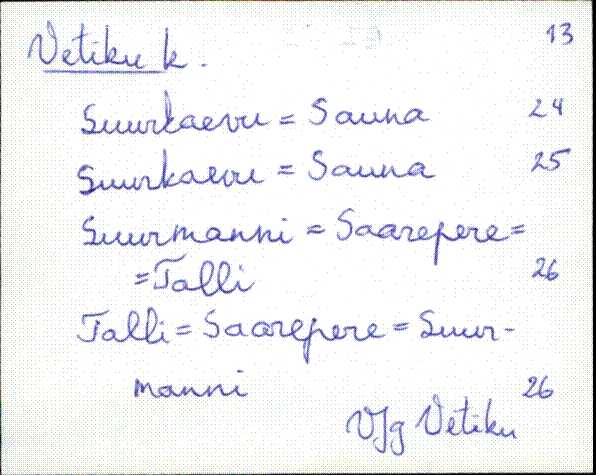 Vetiku k. 13
Suurkaevu = Sauna 24
Suurkaevu = Sauna 25
Suurmanni = Saarepere =
= Talli 26
Talli = Saarepere = Suur-
manni 26
VJg Vetiku